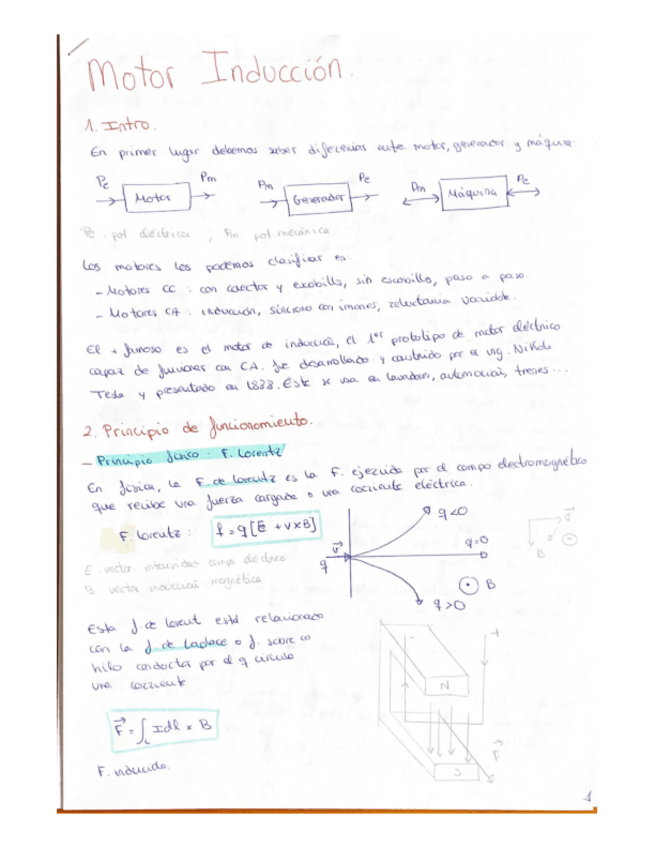 Motor Inducción.
1. Intro.
En primer lugar debemos saber diferencias entre motor, generador y máquina.
Pe Motor Pm Pm Generador Pe Pm Máquina Pe
Pe. pot eléctrica ; Pm pot mecánica
Los motores los podemos clasificar en:
- Motores CC : con colector y escobills, sin escobillo, paso a paso.
- Motores CA : inducción, síncrono con imanes, reluctancia variable.
El + famoso es el motor de inducción, el 1er prototipo de motor eléctrico
capaz de funcionar con CA. fue desarrollado y construido por el ing. Nikola
Tesla y presentado en 1888. Este se usa en lavadoras, automoción, trenes...
2. Principio de funcionamiento.
- Principio físico : F. Lorentz
En física, la F. de Lorentz es la F. ejercida por el campo electromagnético
que recibe una fuerza cargada o una corriente eléctrica.
F. Lorentz : f = q[E + v×B]
q<0
q=0
q>0
v
q
B
v
B
E. vector intensidad campo eléctrico
B vector inducción magnética
Esta f. de Lorentz está relacionada
con la f. de Laplace o f. sobre un
hilo conductor por el q circula
una corriente
F = ∫ Idl × B
F. inducida.
N
S
F
1